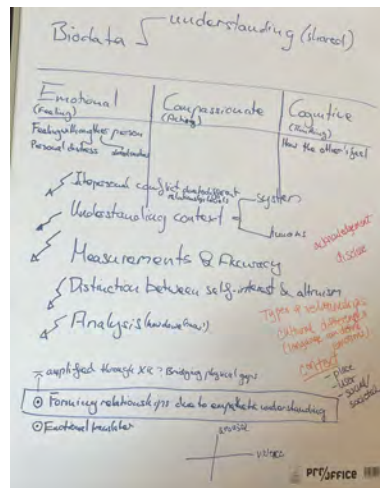 Biodata
understanding (shared)
Emotional
(Feeling)
Compassionate
(Acting)
Cognitive
(Thinking)
Feeling with another person
Personal distress
How the other's feel
Interpersonal conflict due to different
System
Understanding context
humans
Measurements & Accuracy
Distinction between self-interest & altruism
Analysis
acknowledgement
disclose
Types of relationships
cultural differences
context
- place
- user
- social/
societal
amplified through XR? Bridging physical gaps
Forming relationships due to empathetic understanding
Emotional translator
arousal
valence
OFFICE